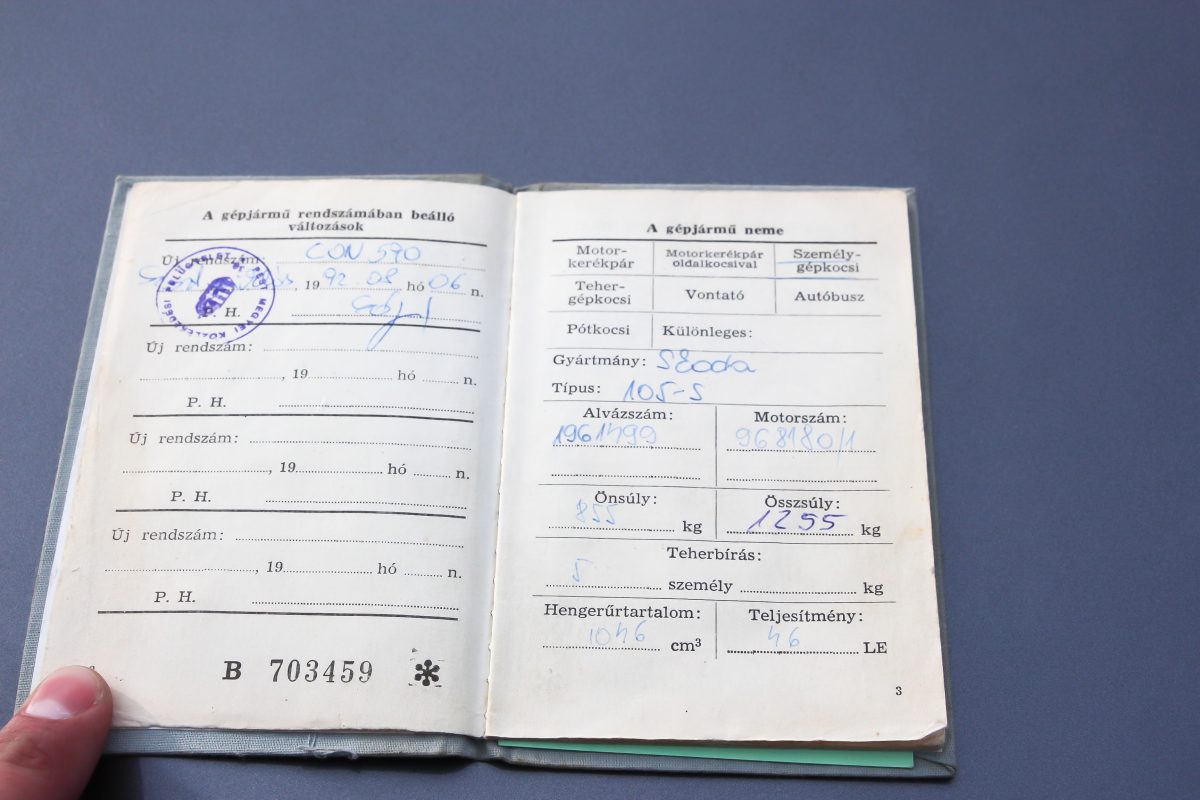 A gépjármű rendszámában beálló
változások
Új rendszám: CON 590
, 1992 08 hó 06 n.
P. H.
Új rendszám:
, 19 hó n.
P. H.
Új rendszám:
, 19 hó n.
P. H.
Új rendszám:
, 19 hó n.
P. H.
B 703459 *
A gépjármű neme
Motor-
kerékpár
Motorkerékpár
oldalkocsival
Személy-
gépkocsi
Teher-
gépkocsi
Vontató
Autóbusz
Pótkocsi
Különleges:
Gyártmány: Skoda
Típus: 105-S
Alvázszám:
Motorszám:
1961499
968180/1
Önsúly:
Összsúly:
855 kg
1255 kg
Teherbírás:
5 személy kg
Hengerűrtartalom:
Teljesítmény:
1046 cm³
46 LE
3